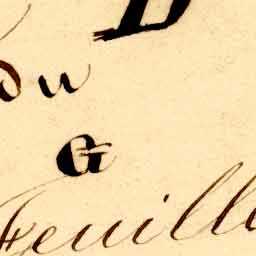 D
du
G
Feuille